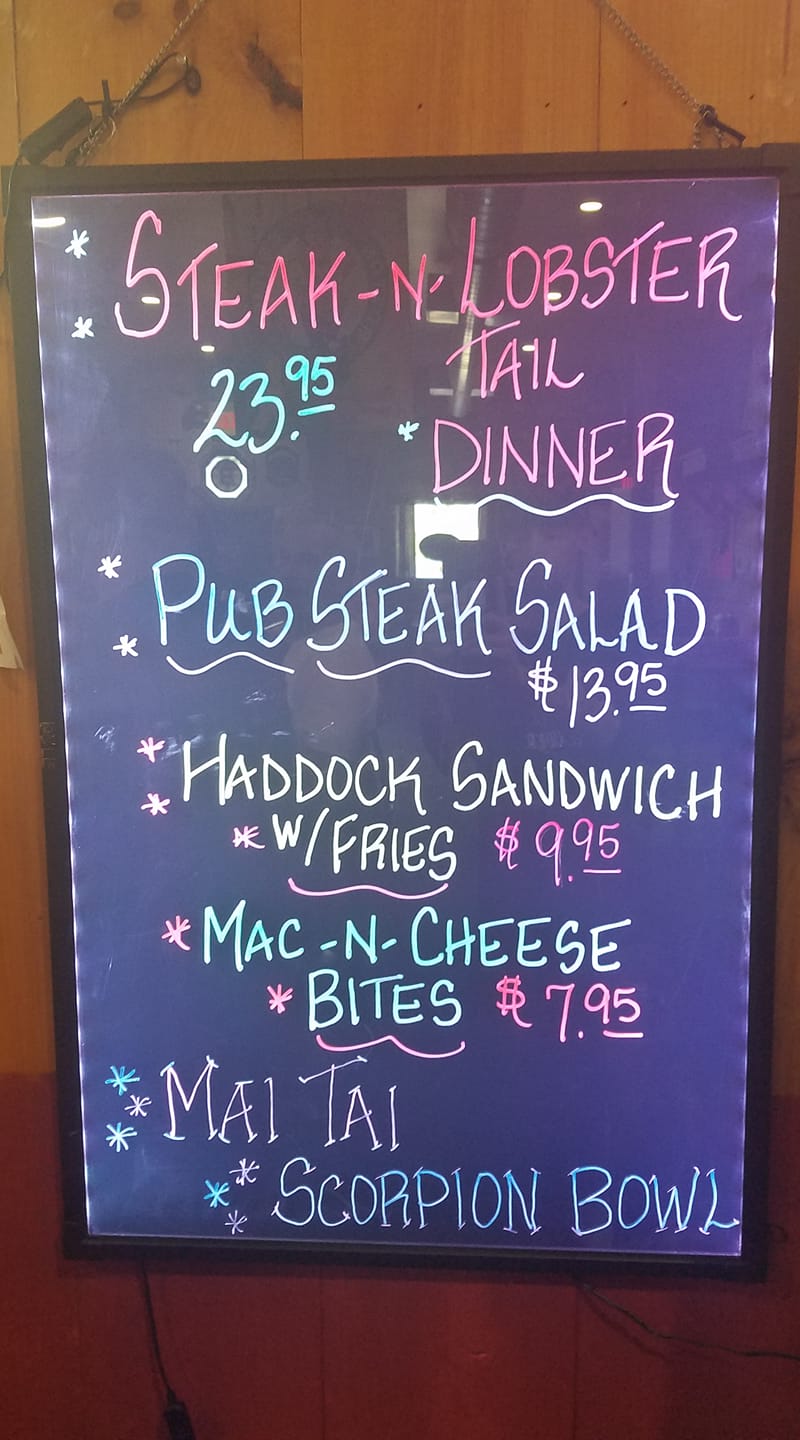 * STEAK-N-LOBSTER
* TAIL
23.95 * DINNER
* PUB STEAK SALAD
* $13.95
* HADDOCK SANDWICH
* * W/FRIES $9.95
* MAC-N-CHEESE
* BITES $7.95
* * * MAI TAI
* * * SCORPION BOWL